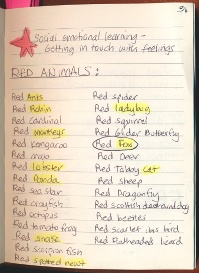 Social emotional learning -
Getting in touch with feelings
RED ANIMALS:
Red Ants
Red Robin
Red Cardinal
Red monkeys
Red kangaroo
Red
Red lobster
Red Panda
Red sea star
Red crayfish
Red octopus
Red tomato frog
Red snake
Red scorpion fish
Red spotted newt
Red spider
Red ladybug
Red squirrel
Red Glider Butterfly
Red Fox
Red Deer
Red Tabby cat
Red sheep
Red Dragonfly
Red Scottish deerhound dog
Red beetles
Red Scarlet ibis bird
Red Flatheaded lizard